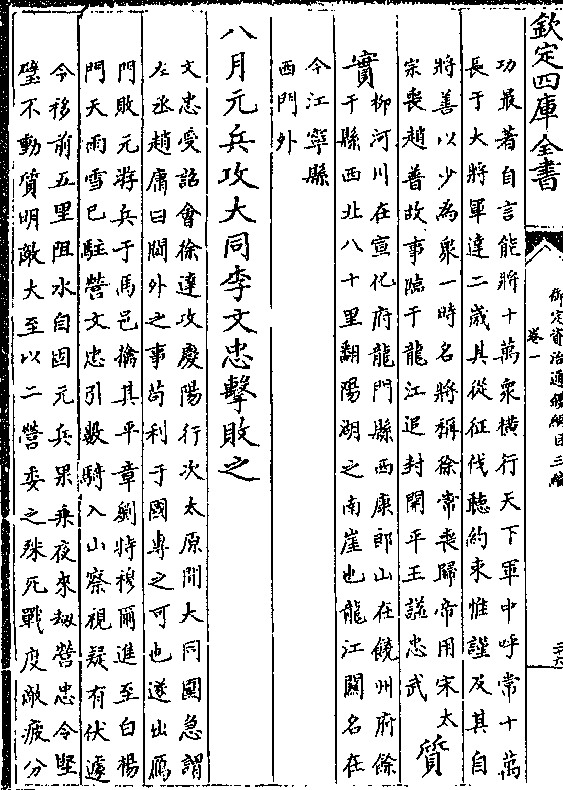 欽定四庫全書
御定資治通鑑綱目三編
卷一
功最著自言能將十萬衆橫行天下軍中呼常十萬
長于大將軍達二歲具從征伐聽約束惟謹及其自
將善以少為衆一時名將稱徐常喪歸帝用宋太
宗喪趙普故事臨于龍江追封開平王諡忠武
質
實
柳河川在宣化府龍門縣西康郎山在饒州府餘
干縣西北八十里翻陽湖之南崖也龍江關名在
今江寧縣
西門外
八月元兵攻大同李文忠擊敗之
文忠受詔會徐達攻慶陽行次太原聞大同圍急謂
左丞趙庸曰閫外之事苟利于國專之可也遂出鴈
門敗元游兵于馬邑擒其平章劉特穆爾進至白楊
門天雨雪已駐營文忠引數騎入山察視疑有伏遽
令移前五里阻水自固元兵果乗夜來刼營忠令堅
壁不動質明敵大至以二營委之殊死戰度敵疲分